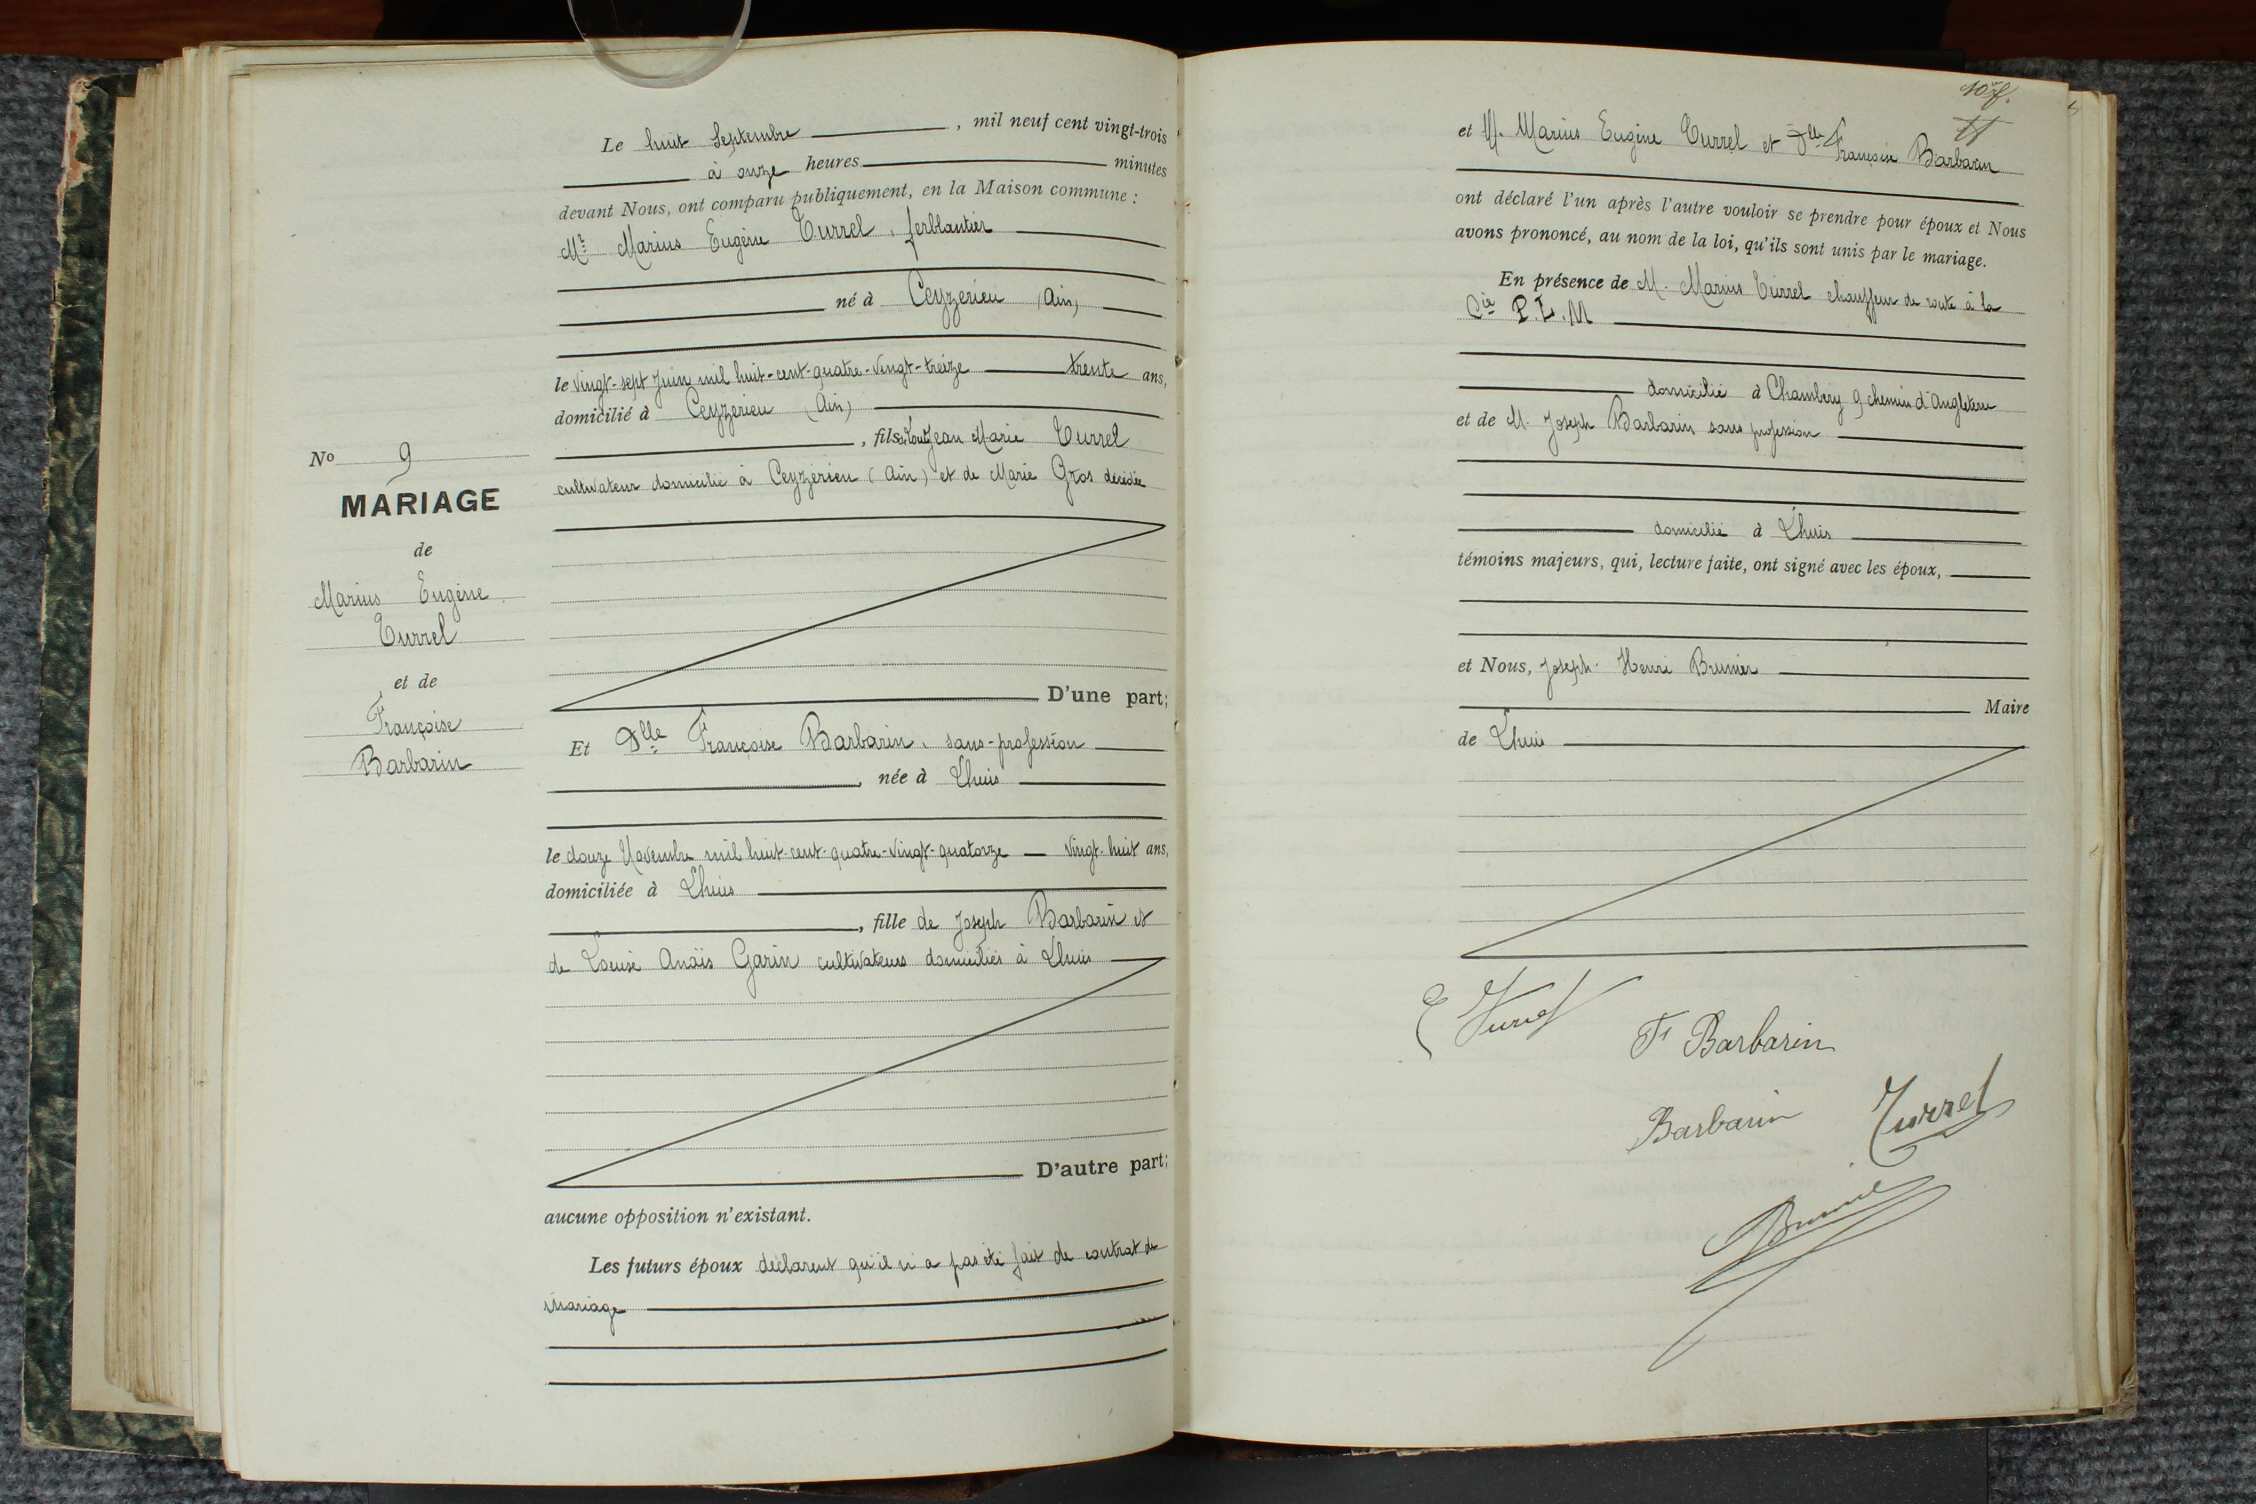 No 9
MARIAGE
de
Marius Eugène
Turrel
et de
Françoise
Barbarin
Le huit Septembre , mil neuf cent vingt-trois
à onze heures minutes
devant Nous, ont comparu publiquement, en la Maison commune :
Mr Marius Eugène Turrel, ferblantier
né à Ceyzerieu (Ain)
le vingt-sept Juin mil huit-cent-quatre-vingt-treize trente ans,
domicilié à Ceyzerieu (Ain)
, fils Jean Marie Turrel
cultivateur domicilié à Ceyzérieu (Ain) et de Marie Gros décédée
D'une part;
Et Dlle Françoise Barbarin, sans-profession
, née à Lhuis
le douze Novembre mil huit-cent-quatre-vingt-quatorze vingt-huit ans,
domiciliée à Lhuis
, fille de Joseph Barbarin et
de Louise Anaïs Garin cultivateurs domiciliés à Lhuis
D'autre part;
aucune opposition n'existant.
Les futurs époux déclarent qu'il n'a pas été fait de contrat de
mariage
107.
et M. Marius Eugène Turrel et Dlle Françoise Barbarin
ont déclaré l'un après l'autre vouloir se prendre pour époux et Nous
avons prononcé, au nom de la loi, qu'ils sont unis par le mariage.
En présence de M. Marius Turrel chauffeur de route à la
Cie P.L.M
domicilié à Chambéry 9 chemin d'Angleterre
et de M. Joseph Barbarin sans profession
domicilié à Lhuis
témoins majeurs, qui, lecture faite, ont signé avec les époux,
et Nous, Joseph Henri Brunier
Maire
de Lhuis
E Turrel
F Barbarin
Barbarin
Turrel
Brunier